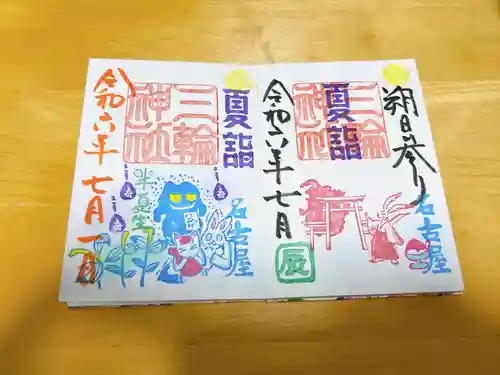 朔日参り
夏詣
三輪神社
令和六年七月
名古屋
辰
夏詣
三輪神社
令和六年七月一日
半夏生
名古屋